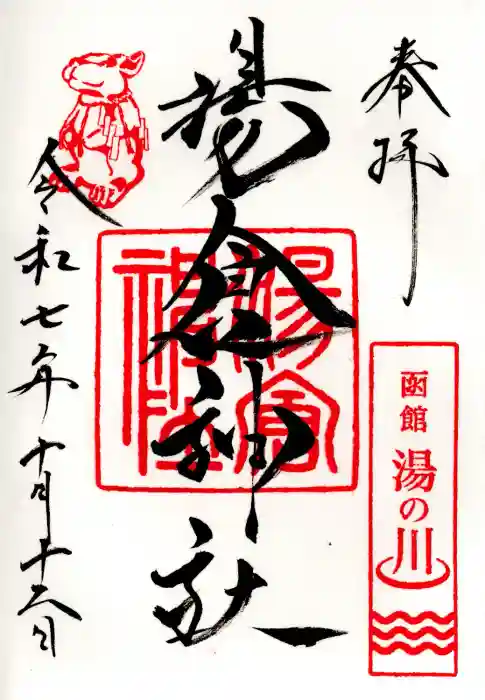 奉拝
函館
湯の川
湯倉神社
湯倉神社
令和七年十月十三日